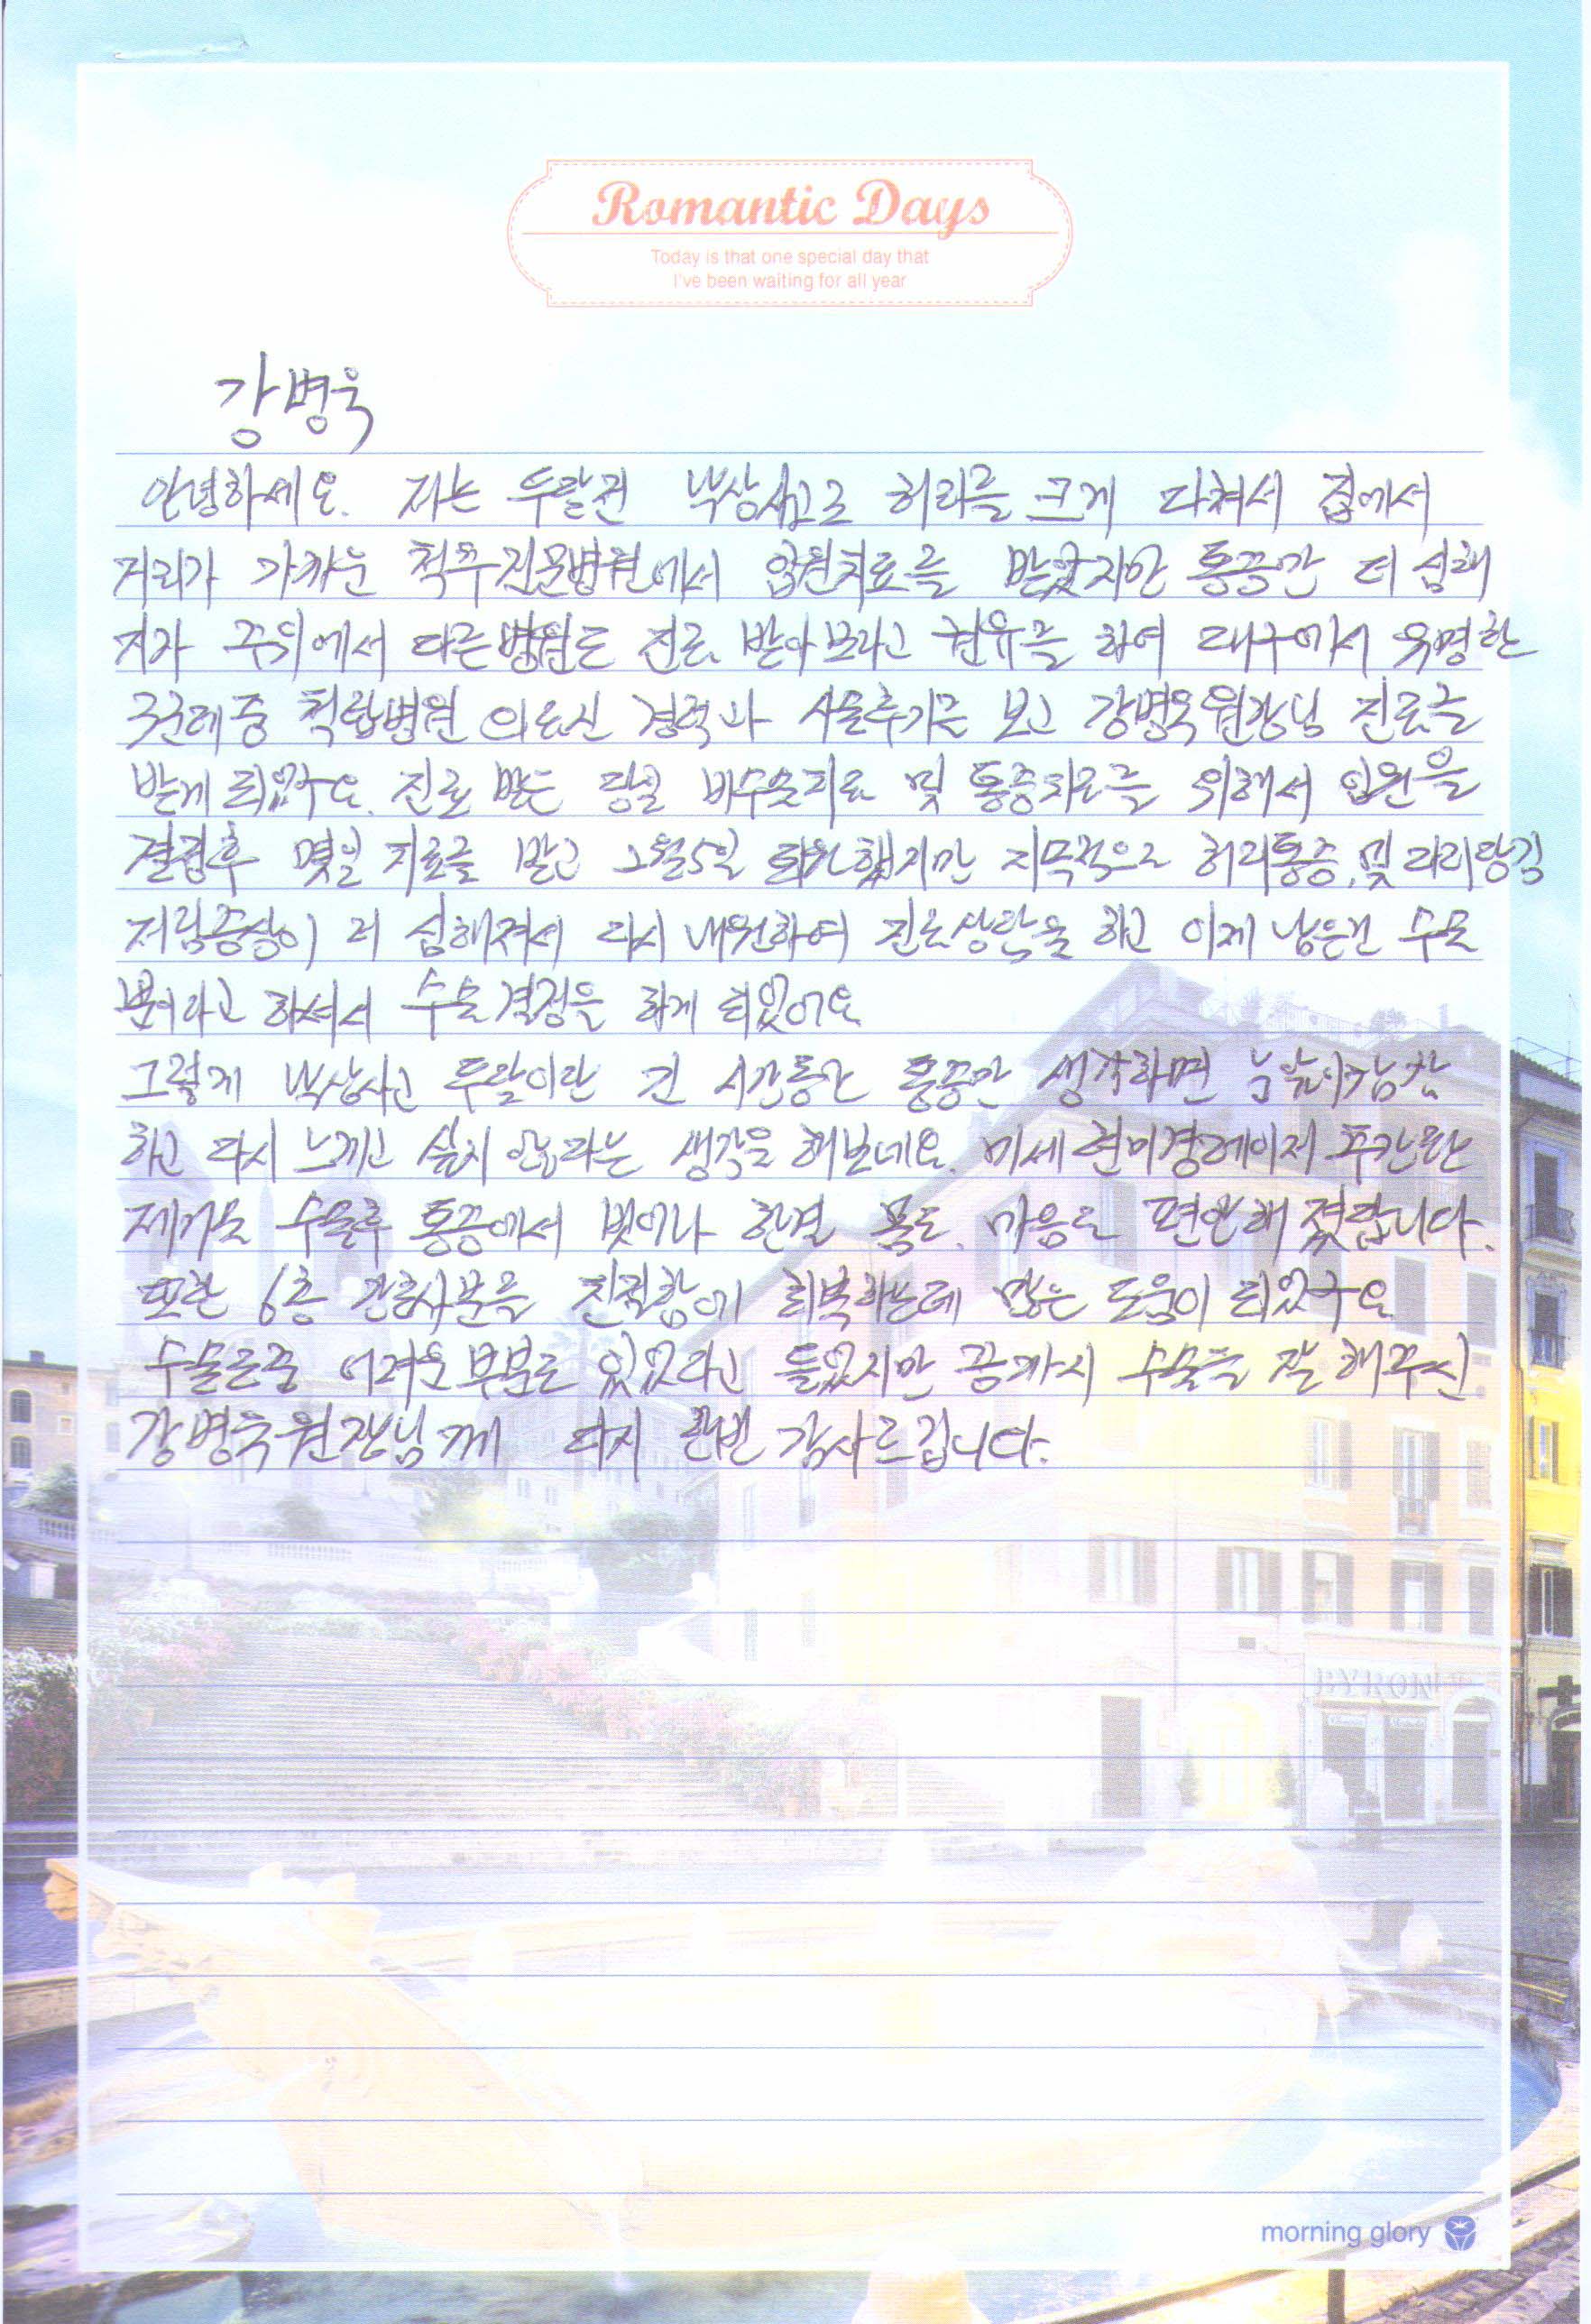 Romantic Days
Today is that one special day that
I've been waiting for all year
강병욱
안녕하세요. 저는 두달전 낙상사고로 허리를 크게 다쳐서 집에서
거리가 가까운 척추전문병원에서 입원치료를 받았지만 통증만 더 심해
지자 주위에서 다른병원도 진료 받아보라고 권유를 하여 대구에서 유명한
곳인데중 척탑병원 의료진 경력과 시술후기를 보고 강병욱원장님 진료를
받게 되었구요. 진료 받은 당일 비수술치료 및 통증치료를 위해서 입원을
결정후 몇일 치료를 받고 5일 퇴원했지만 지속적으로 허리통증, 및 다리당김
저림증상이 더 심해져서 다시 내원하여 진료상담을 하고 이제 남은건 수술
뿐이라고 하셔서 수술결정을 하게 되었어요
그렇게 낙상사고 두달이란 긴 시간동안 통증만 생각하면
하고 다시 느끼고 싶지 않다는 생각을 해보네요. 미세현미경레이저
수술후 통증에서 벗어나 한결 몸도, 마음도 편안해 졌답니다.
또한 6층 간호사분들 친절함에 회복하는데 많은 도움이 되었구요
수술도중 어려운부분도 있었다고 들었지만 끝까지 수술을 잘 해주신
강병욱원장님께 다시 한번 감사드립니다.
morning glory